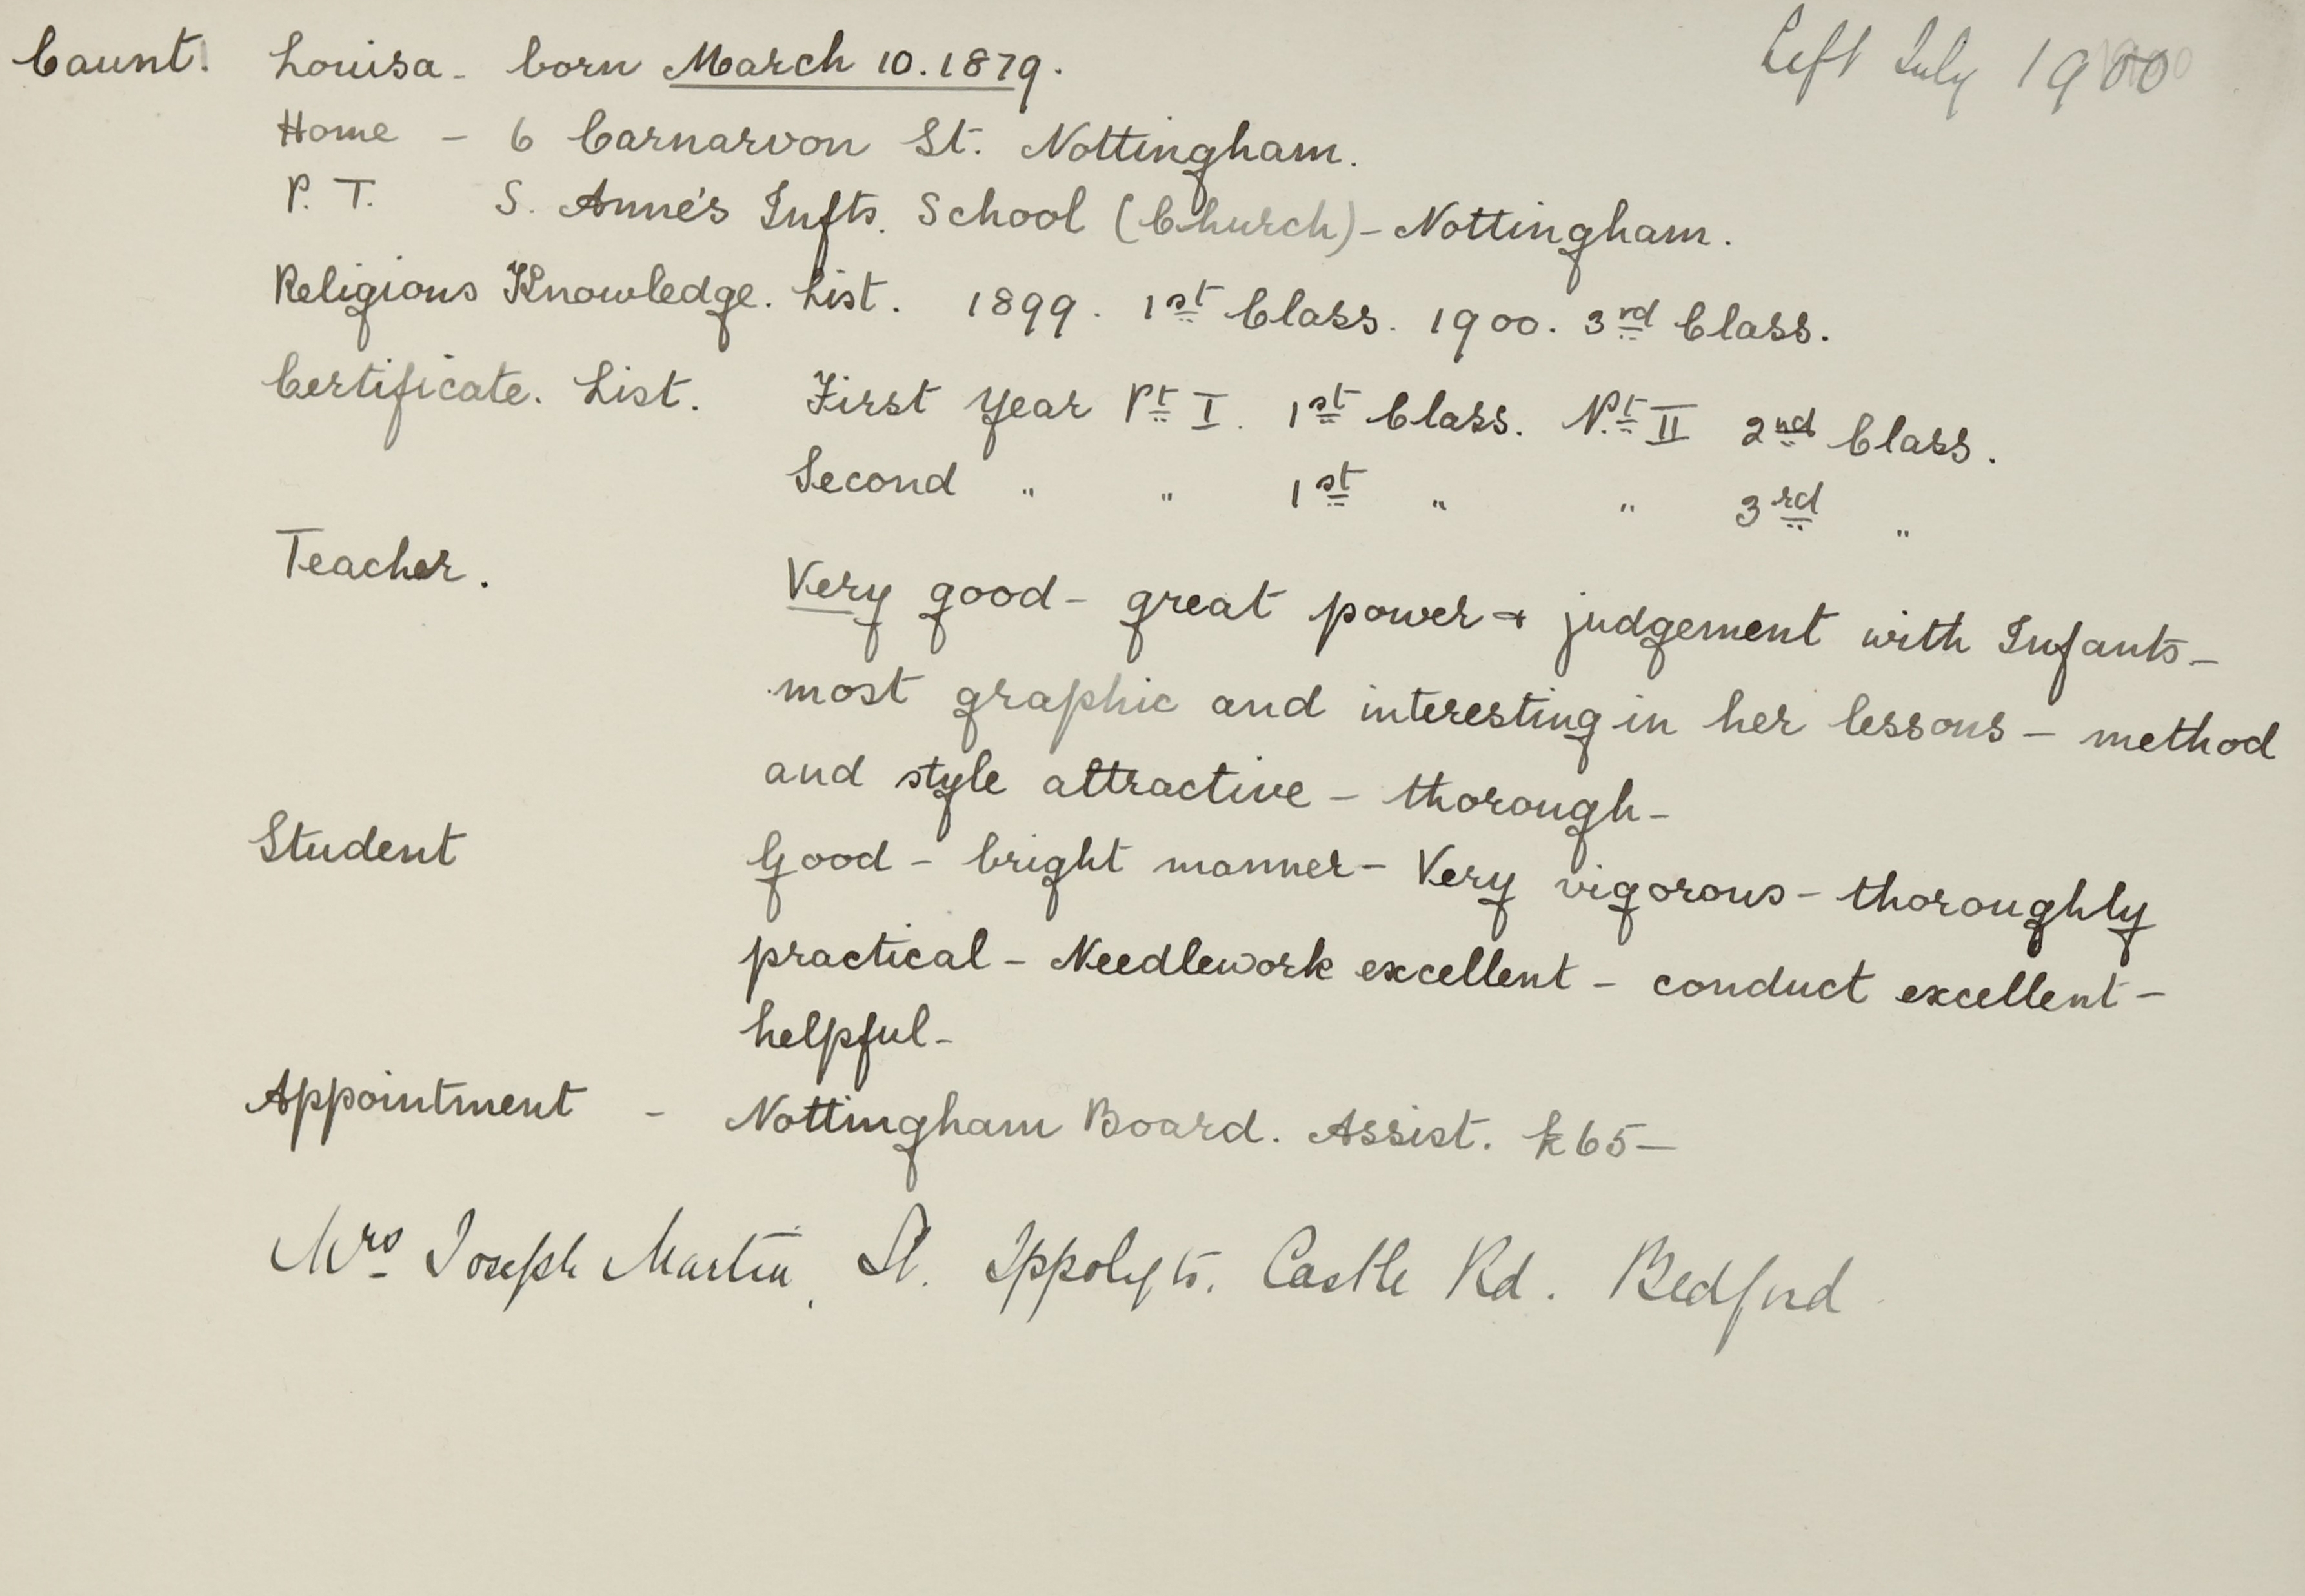 Caunt. Louisa - born March 10. 1879. Left July 1900
Home - 6 Carnarvon St. Nottingham.
P. T. S. Anne's Infts. School (Church) - Nottingham.
Religious Knowledge. List. 1899. 1st Class. 1900. 3rd Class.
Certificate. List. First Year Pt I. 1st Class. Pt. II 2nd Class.
Second " " 1st " " 3rd "
Teacher. Very good - great power & judgement with Infants -
most graphic and interesting in her lessons - method
and style attractive - thorough -
Student Good - bright manner - Very vigorous - thoroughly
practical - Needlework excellent - conduct excellent -
helpful -
Appointment - Nottingham Board. Assist. £65 -
Mrs Joseph Martin, St. Ippolyts. Castle Rd. Bedford